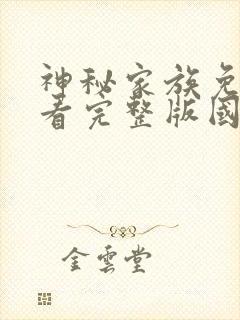 神秘家族免
看完整版國
金雲堂